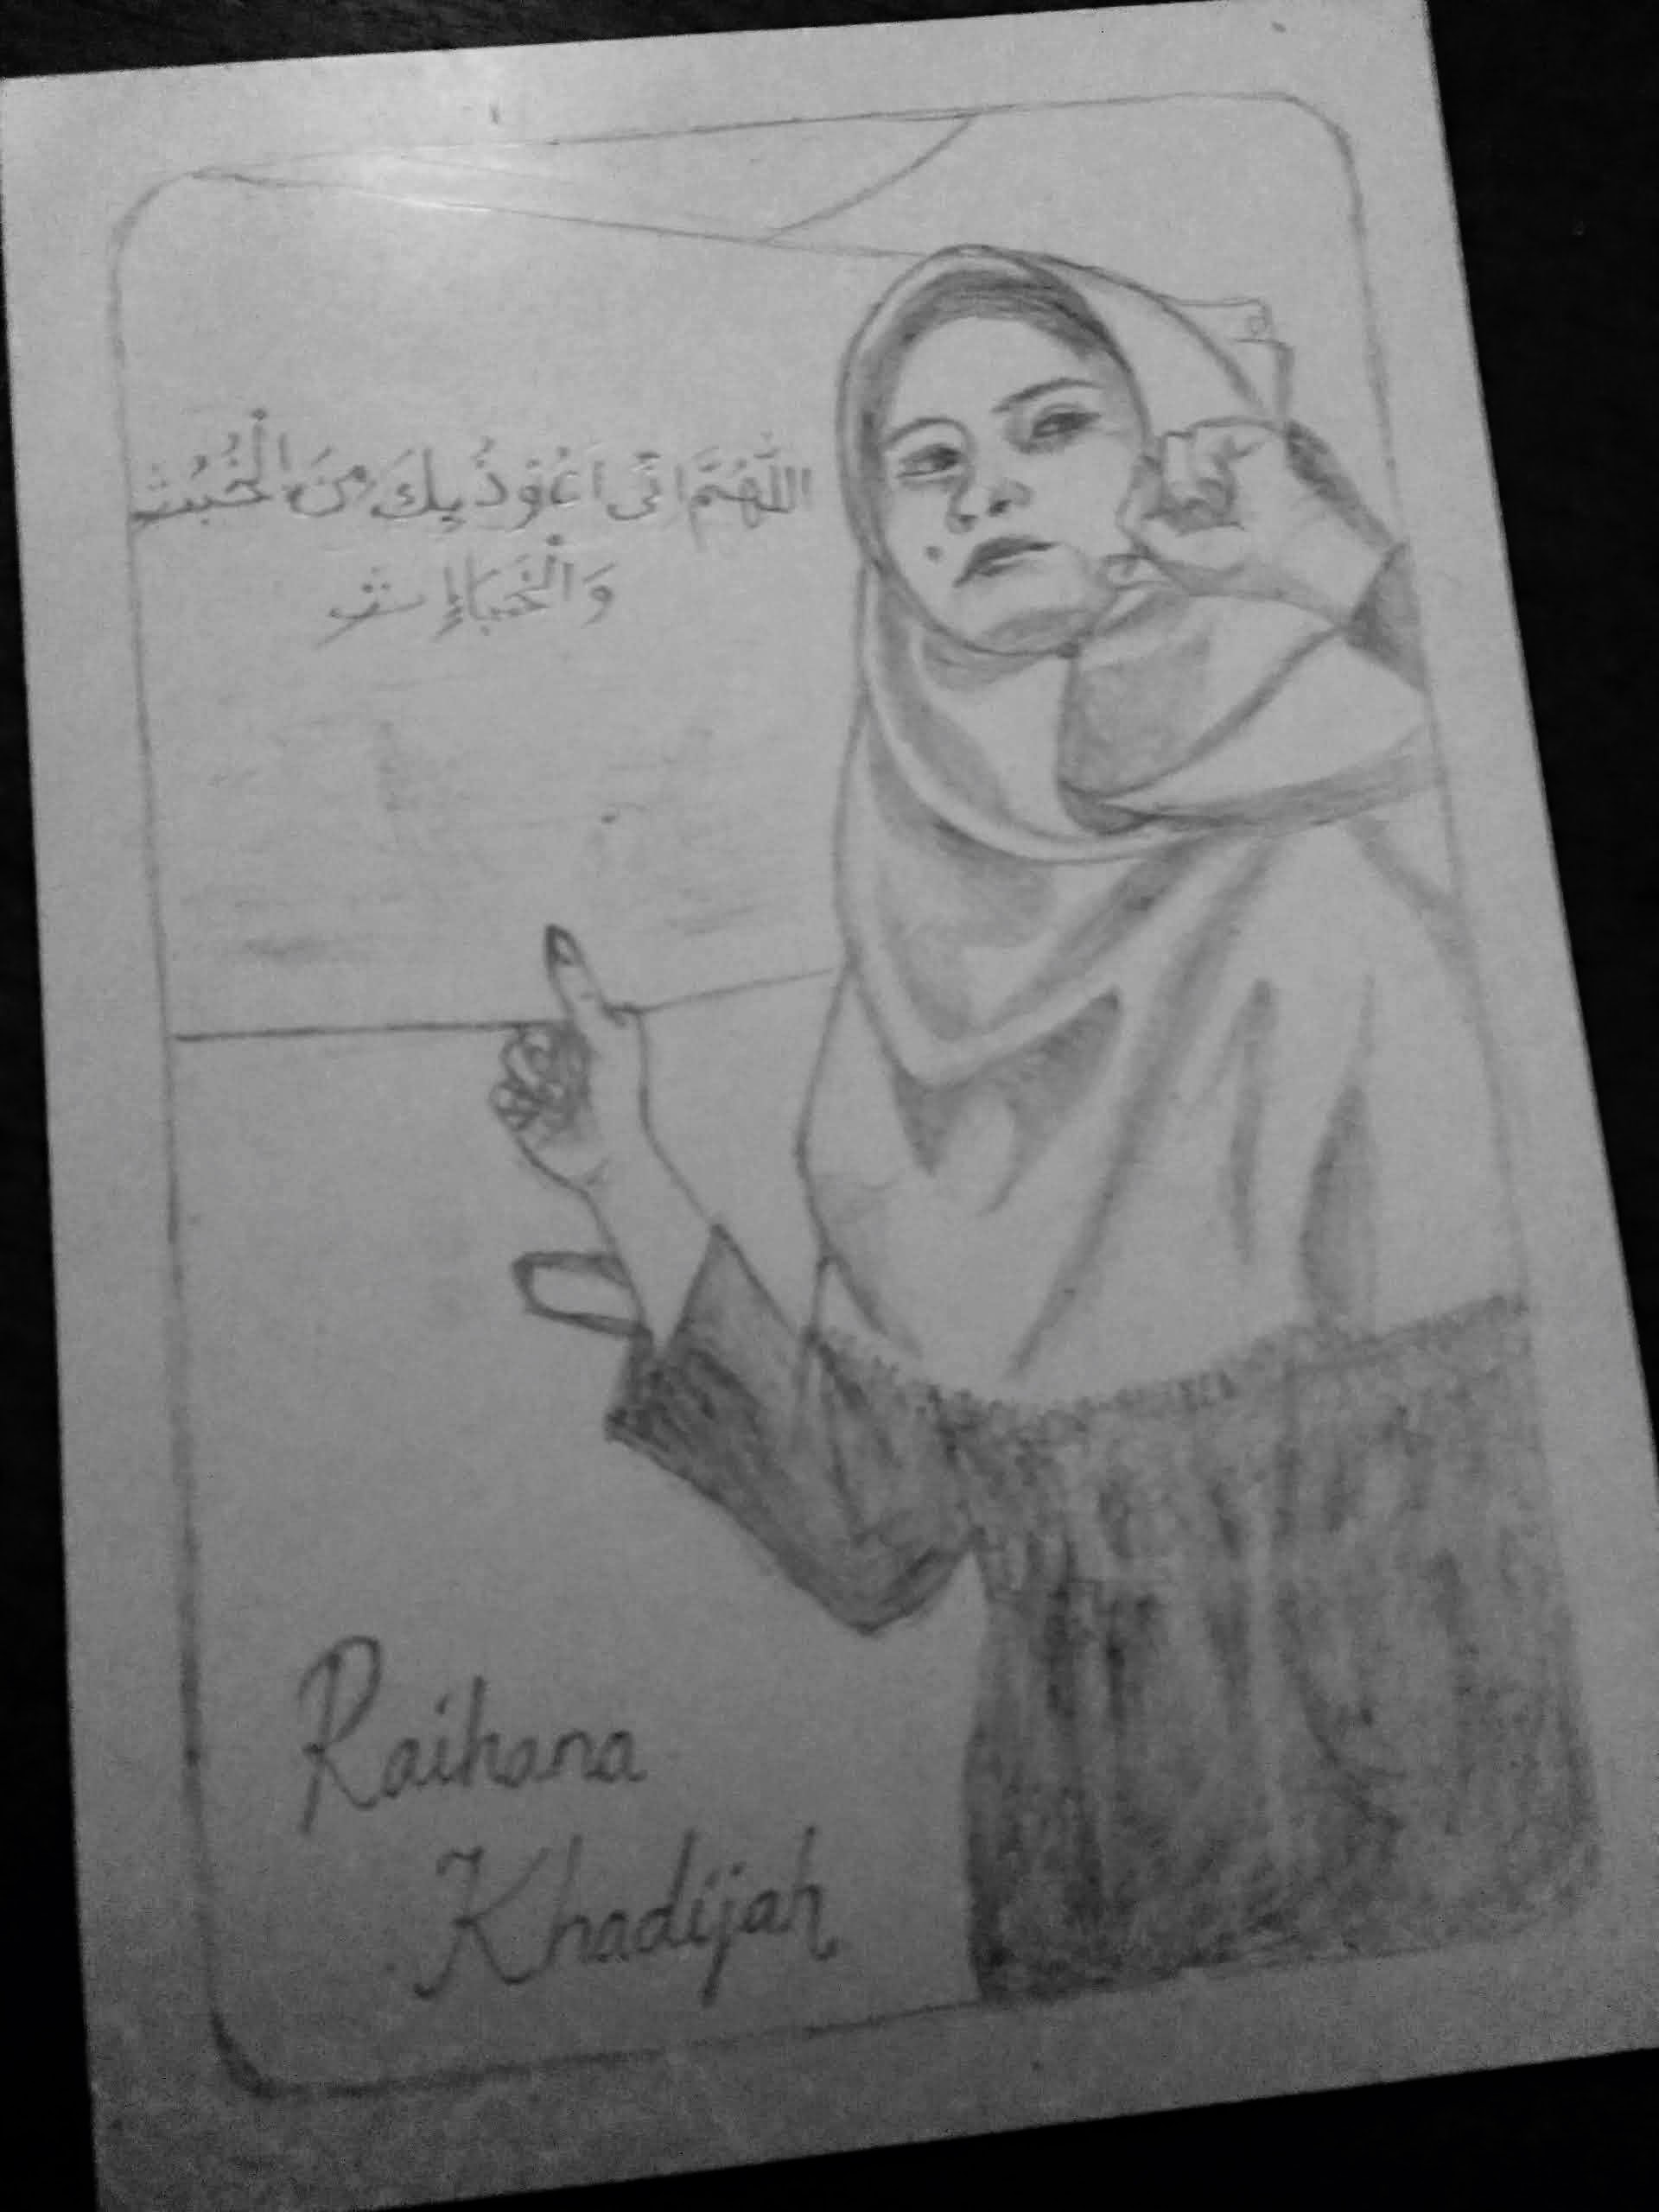 اللّٰهُمَّ اِنِّى اَعُوْذُ بِكَ مِنَ الْخُبُثِ
وَالْخَبَاإِثِ
Raihana
Khadijah